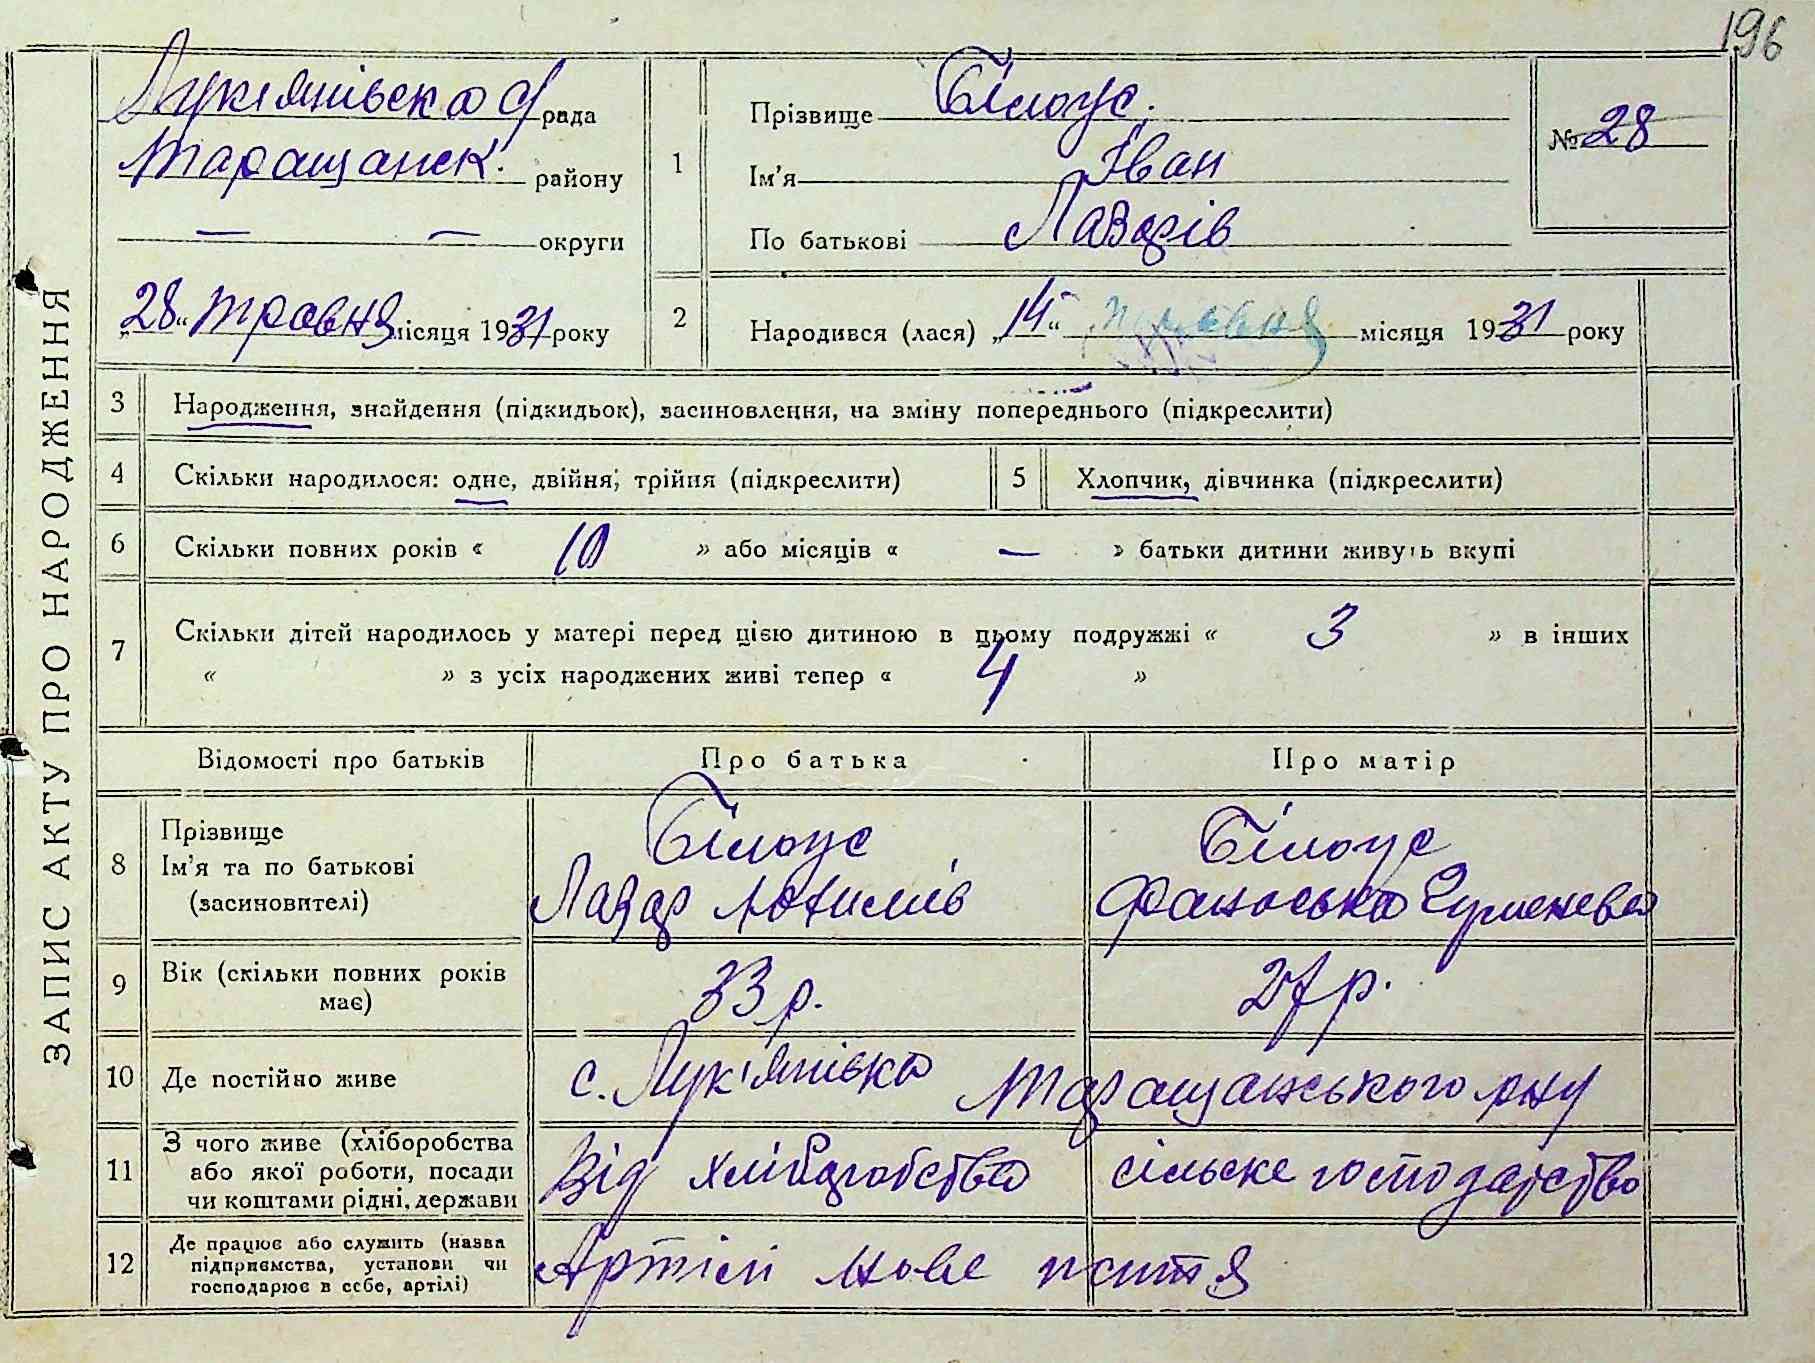 196
ЗАПИС АКТУ ПРО НАРОДЖЕННЯ
Лукянівська с/рада
Таращанск. району
— — округи
„28“ травня місяця 1931 року
1
Прізвище Білоус.
Ім'я Іван
По батькові Лазарів
№ 28
2
Народився (лася) „14“ травня місяця 1931 року
3 Народження, знайдення (підкидьок), засиновлення, на зміну попереднього (підкреслити)
4 Скільки народилося: одне, двійня, трійня (підкреслити)
5 Хлопчик, дівчинка (підкреслити)
6 Скільки повних років « 10 » або місяців « — » батьки дитини живуть вкупі
7 Скільки дітей народилось у матері перед цією дитиною в цьому подружжі « 3 » в інших
« » з усіх народжених живі тепер « 4 »
Відомості про батьків Про батька Про матір
8 Прізвище
Ім'я та по батькові
(засиновителі)
Білоус
Лазар
Білоус
9 Вік (скільки повних років
має)
33 р.
27 р.
10 Де постійно живе с. Лук'янівка Таращанського рну
11 З чого живе (хліборобства
або якої роботи, посади
чи коштами рідні, держави
Від хліборобства сільске господарство
12 Де працює або служить (назва
підприємства, установи чи
господарює в себе, артілі)
Артілі нове життя